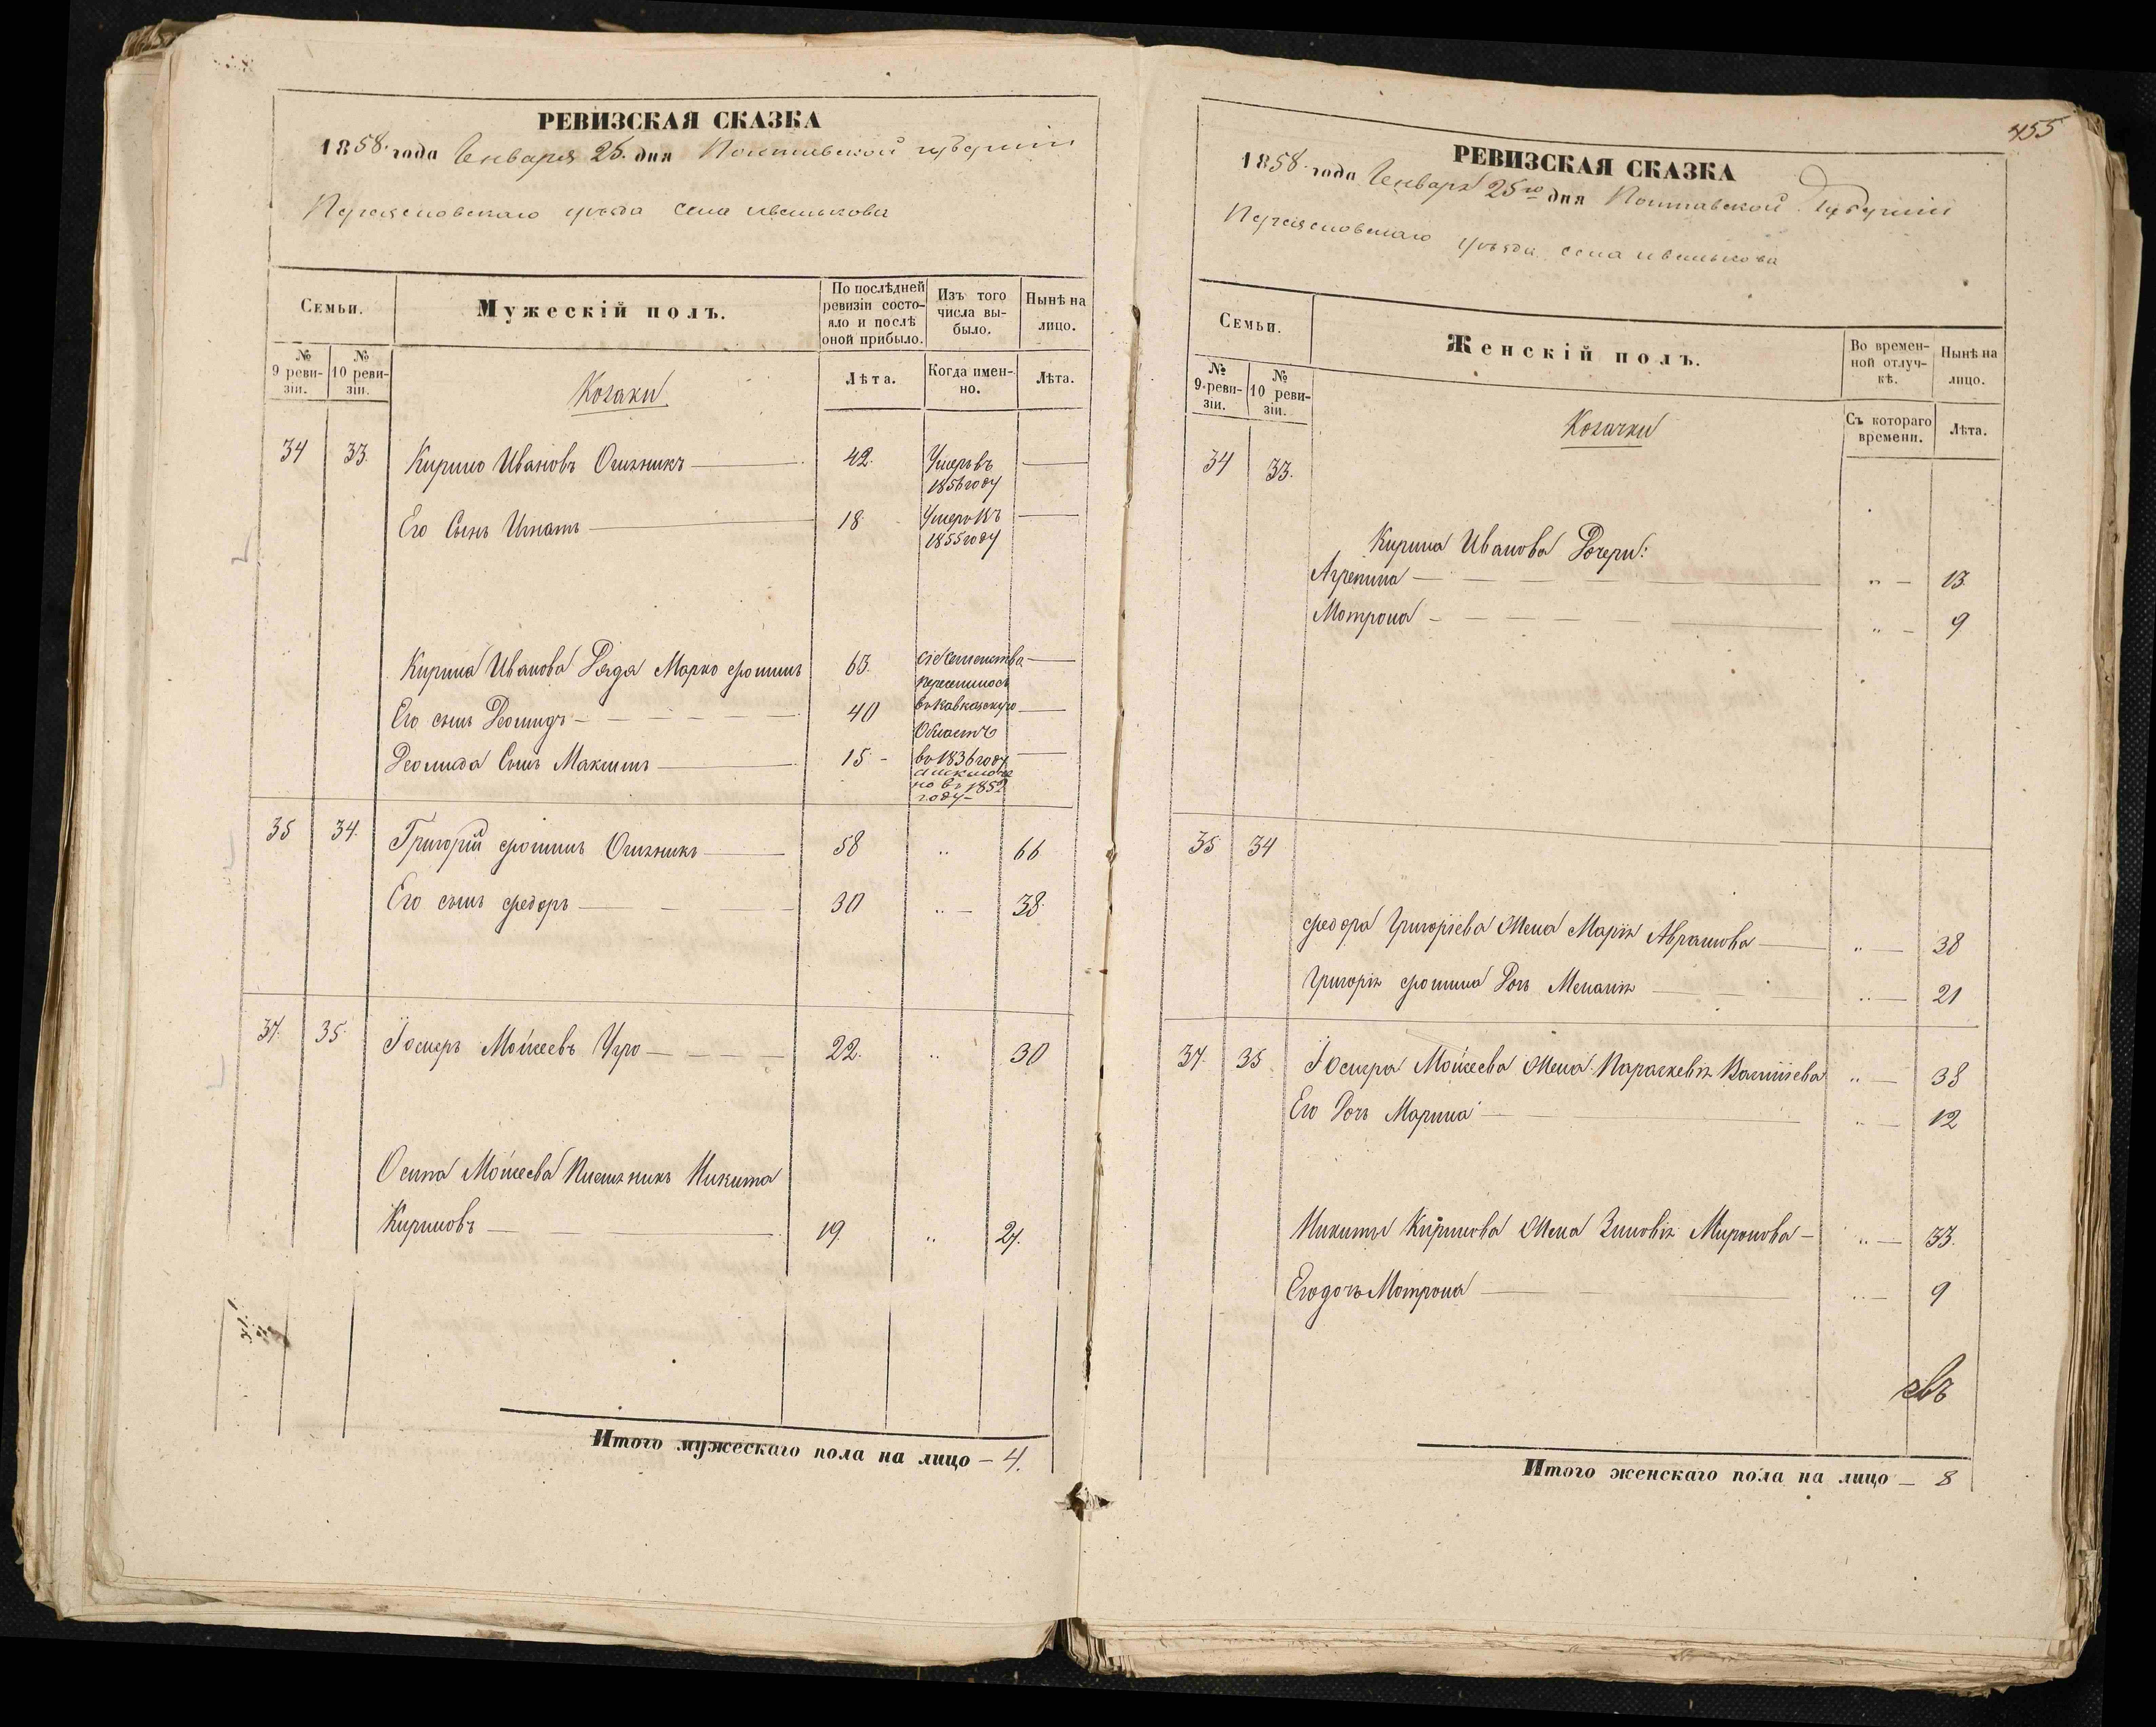 РЕВИЗСКАЯ СКАЗКА
1858 года Генваря 25 дня Полтавской губернии
Переяславскаго уезда села иванькова
Семьи.
Мужескій полъ.
По послѣдней ревизіи состояло и послѣ оной прибыло.
Изъ того числа выбыло.
Нынѣ на лицо.
№ 9 ревизіи.
№ 10 ревизіи.
Козаки
Лѣта.
Когда именно.
Лѣта.
34 33. Кирило Ивановъ 42. Умеръ въ
1856 году
Его Сынъ Игнатъ 18 Умеръ въ
1855 году
Кирила Иванова Дядя Марко фоминъ 63. сіе семейства
переселилось
Его сынъ Леонидъ 40 въ Кавказскую
Область
Леонида Сынъ Максимъ 15 въ 1836 году
но въ 1852
году
35 34. Григорій фоминъ 58 „ 66
Его сынъ федоръ 30 „ 38
37. 35 Іосифъ Моисеевъ Угро 22. „ 30
Осипа Моисеева Племяникъ Никита
Кириловъ 19. „ 27.
Итого мужескаго пола на лицо – 4.
455
РЕВИЗСКАЯ СКАЗКА
1858 года Генваря 25го дня Полтавской Губерніи
Переяславскаго уезда села иванькова
Семьи.
Женскій полъ.
Во временной отлучкѣ.
Нынѣ на лицо.
№ 9 ревизіи.
№ 10 ревизіи.
Козачки
Съ котораго времени.
Лѣта.
34 33.
Кирила Иванова Дочери:
Агрепина „ 13
Мотрона „ 9
35 34
федора Григоріева Жена Марія Абрамова „ 38
Григорія фомина Дочь Меланія „ 21
37. 35 Іосифа Моисеева Жена Параскевія Василіева „ 38
Его Дочь Марина „ 12
Никиты Кирилова Жена Зиновія Миронова „ 33.
Его дочь Мотрона „ 9
Итого женскаго пола на лицо – 8